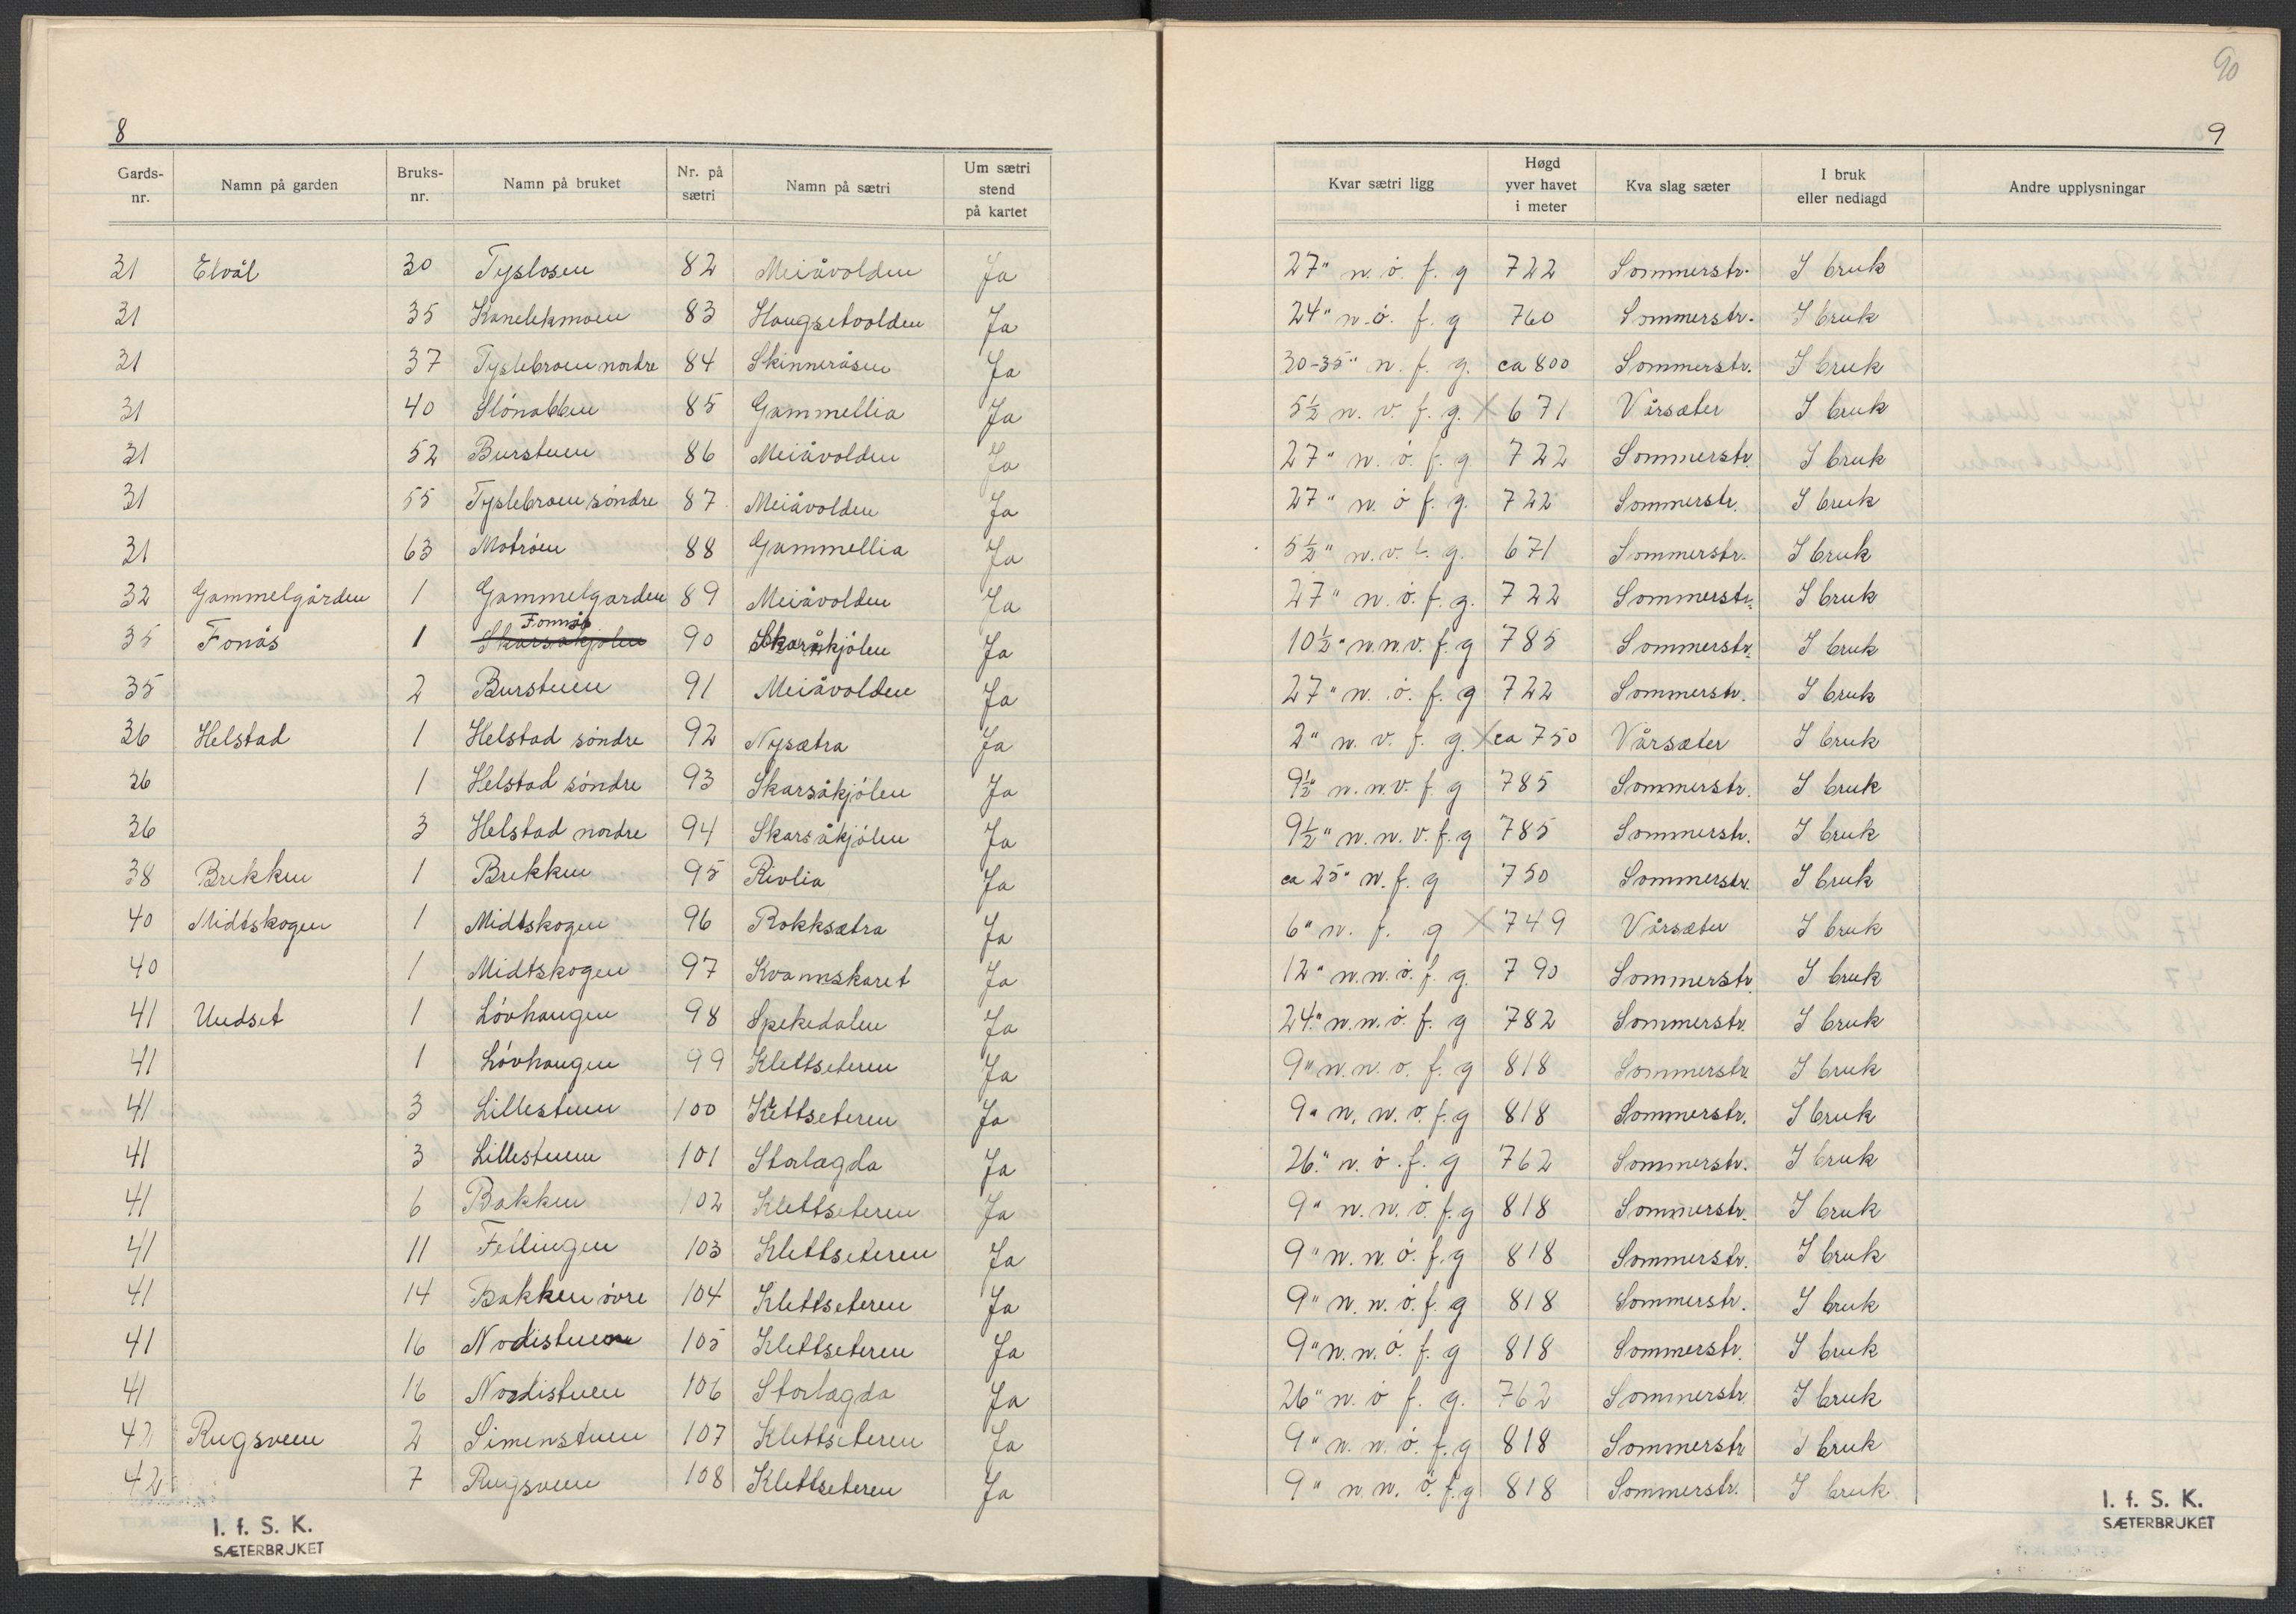 90
8
9
Gards-nr. Namn på garden Bruks-nr. Namn på bruket Nr. på sætri Namn på sætri Um sætri stend på kartet Kvar sætri ligg Høgd yver havet i meter Kva slag sæter I bruk eller nedlagd Andre upplysningar
31 Elvål 30 Tyslosen 82 Meiåvolden Ja 27" n. ö. f. g 722 Sommerstr. I bruk
31 35 83 Haugsetvolden Ja 24" n. ö. f. g 760 Sommerstr. I bruk
31 37 Tyslebroen nordre 84 Skinneråsen Ja 30-35" n. f. g. ca 800 Sommerstr. I bruk
31 40 Slónabben 85 Gammellia Ja 5½ n. v. f. g. X 671 Vårsæter I bruk
31 52 Burstuen 86 Meiåvolden Ja 27" n. ö. f. g 722 Sommerstr. I bruk
31 55 Tyslebroen söndre 87 Meiåvolden Ja 27" n. ö f. g. 722 Sommerstr. I bruk
31 63 Motróen 88 Gammellia Ja 5½" n. v. f. g. 671 Sommerstr. I bruk
32 Gammelgården 1 Gammelgarden 89 Meiåvolden Ja 27" n. ö. f. g. 722 Sommerstr. I bruk
Fonnås
35 Fonås 1 Skarsåkjölen 90 Skaråkjölen Ja 10½" n.n.v. f. g 785 Sommerstr. I bruk
35 2 Burstuen 91 Meiåvolden Ja 27" n. ö. f. g 722 Sommerstr. I bruk
36 Helstad 1 Helstad söndre 92 Nysætra Ja 2" n. v. f. g. X ca 750 Vårsæter I bruk
36 1 Helstad söndre 93 Skarsåkjölen Ja 9½" n.n.v. f. g 785 Sommerstr. I bruk
36 3 Helstad nordre 94 Skarsåkjölen Ja 9½" n. n. v. f. g 785 Sommerstr. I bruk
38 Brekken 1 Brekken 95 Rivlia Ja ca 25" n. f. g 750 Sommerstr. I bruk
40 Midtskogen 1 Midtskogen 96 Rokksætra Ja 6" n. f. g X 749 Vårsæter I bruk
40 1 Midtskogen 97 Kvannskaret Ja 12" n.n.ö. f. g. 790 Sommerstr. I bruk
41 Undset 1 Lövhaugen 98 Spekedalen Ja 24" n.n.ö. f. g 782 Sommerstr. I bruk
41 1 Lövhaugen 99 Klettseteren Ja 9" n.n. o. f. g 818 Sommerstr. I bruk
41 3 Lillestuen 100 Klettseteren Ja 9" n. n. o. f. g 818 Sommerstr. I bruk
41 3 Lillestuen 101 Storlægda Ja 26" n. ö. f. g 762 Sommerstr. I bruk
41 6 Bakken 102 Klettseteren Ja 9" n. n. ö. f. g 818 Sommerstr. I bruk
41 11 Fellingen 103 Klettseteren Ja 9" n. n. ö. f. g 818 Sommerstr. I bruk
41 14 Bakken övre 104 Klettseteren Ja 9" n. n. ö. f. g 818 Sommerstr. I bruk
41 16 Nordistuen 105 Klettseteren Ja 9" n. n. ö. f. g 818 Sommerstr. I bruk
41 16 Nordistuen 106 Storlægda Ja 26" n. ö f. g. 762 Sommerstr. I bruk
42 Rugsveen 2 Simenstuen 107 Klettseteren Ja 9" n. n. ö. f. g 818 Sommerstr. I bruk
42 7 Rugsveen 108 Klettseteren Ja 9" n. n. ö. f. g 818 Sommerstr. I bruk
I. f. S. K.
SÆTERBRUKET
I. f. S. K.
SÆTERBRUKET